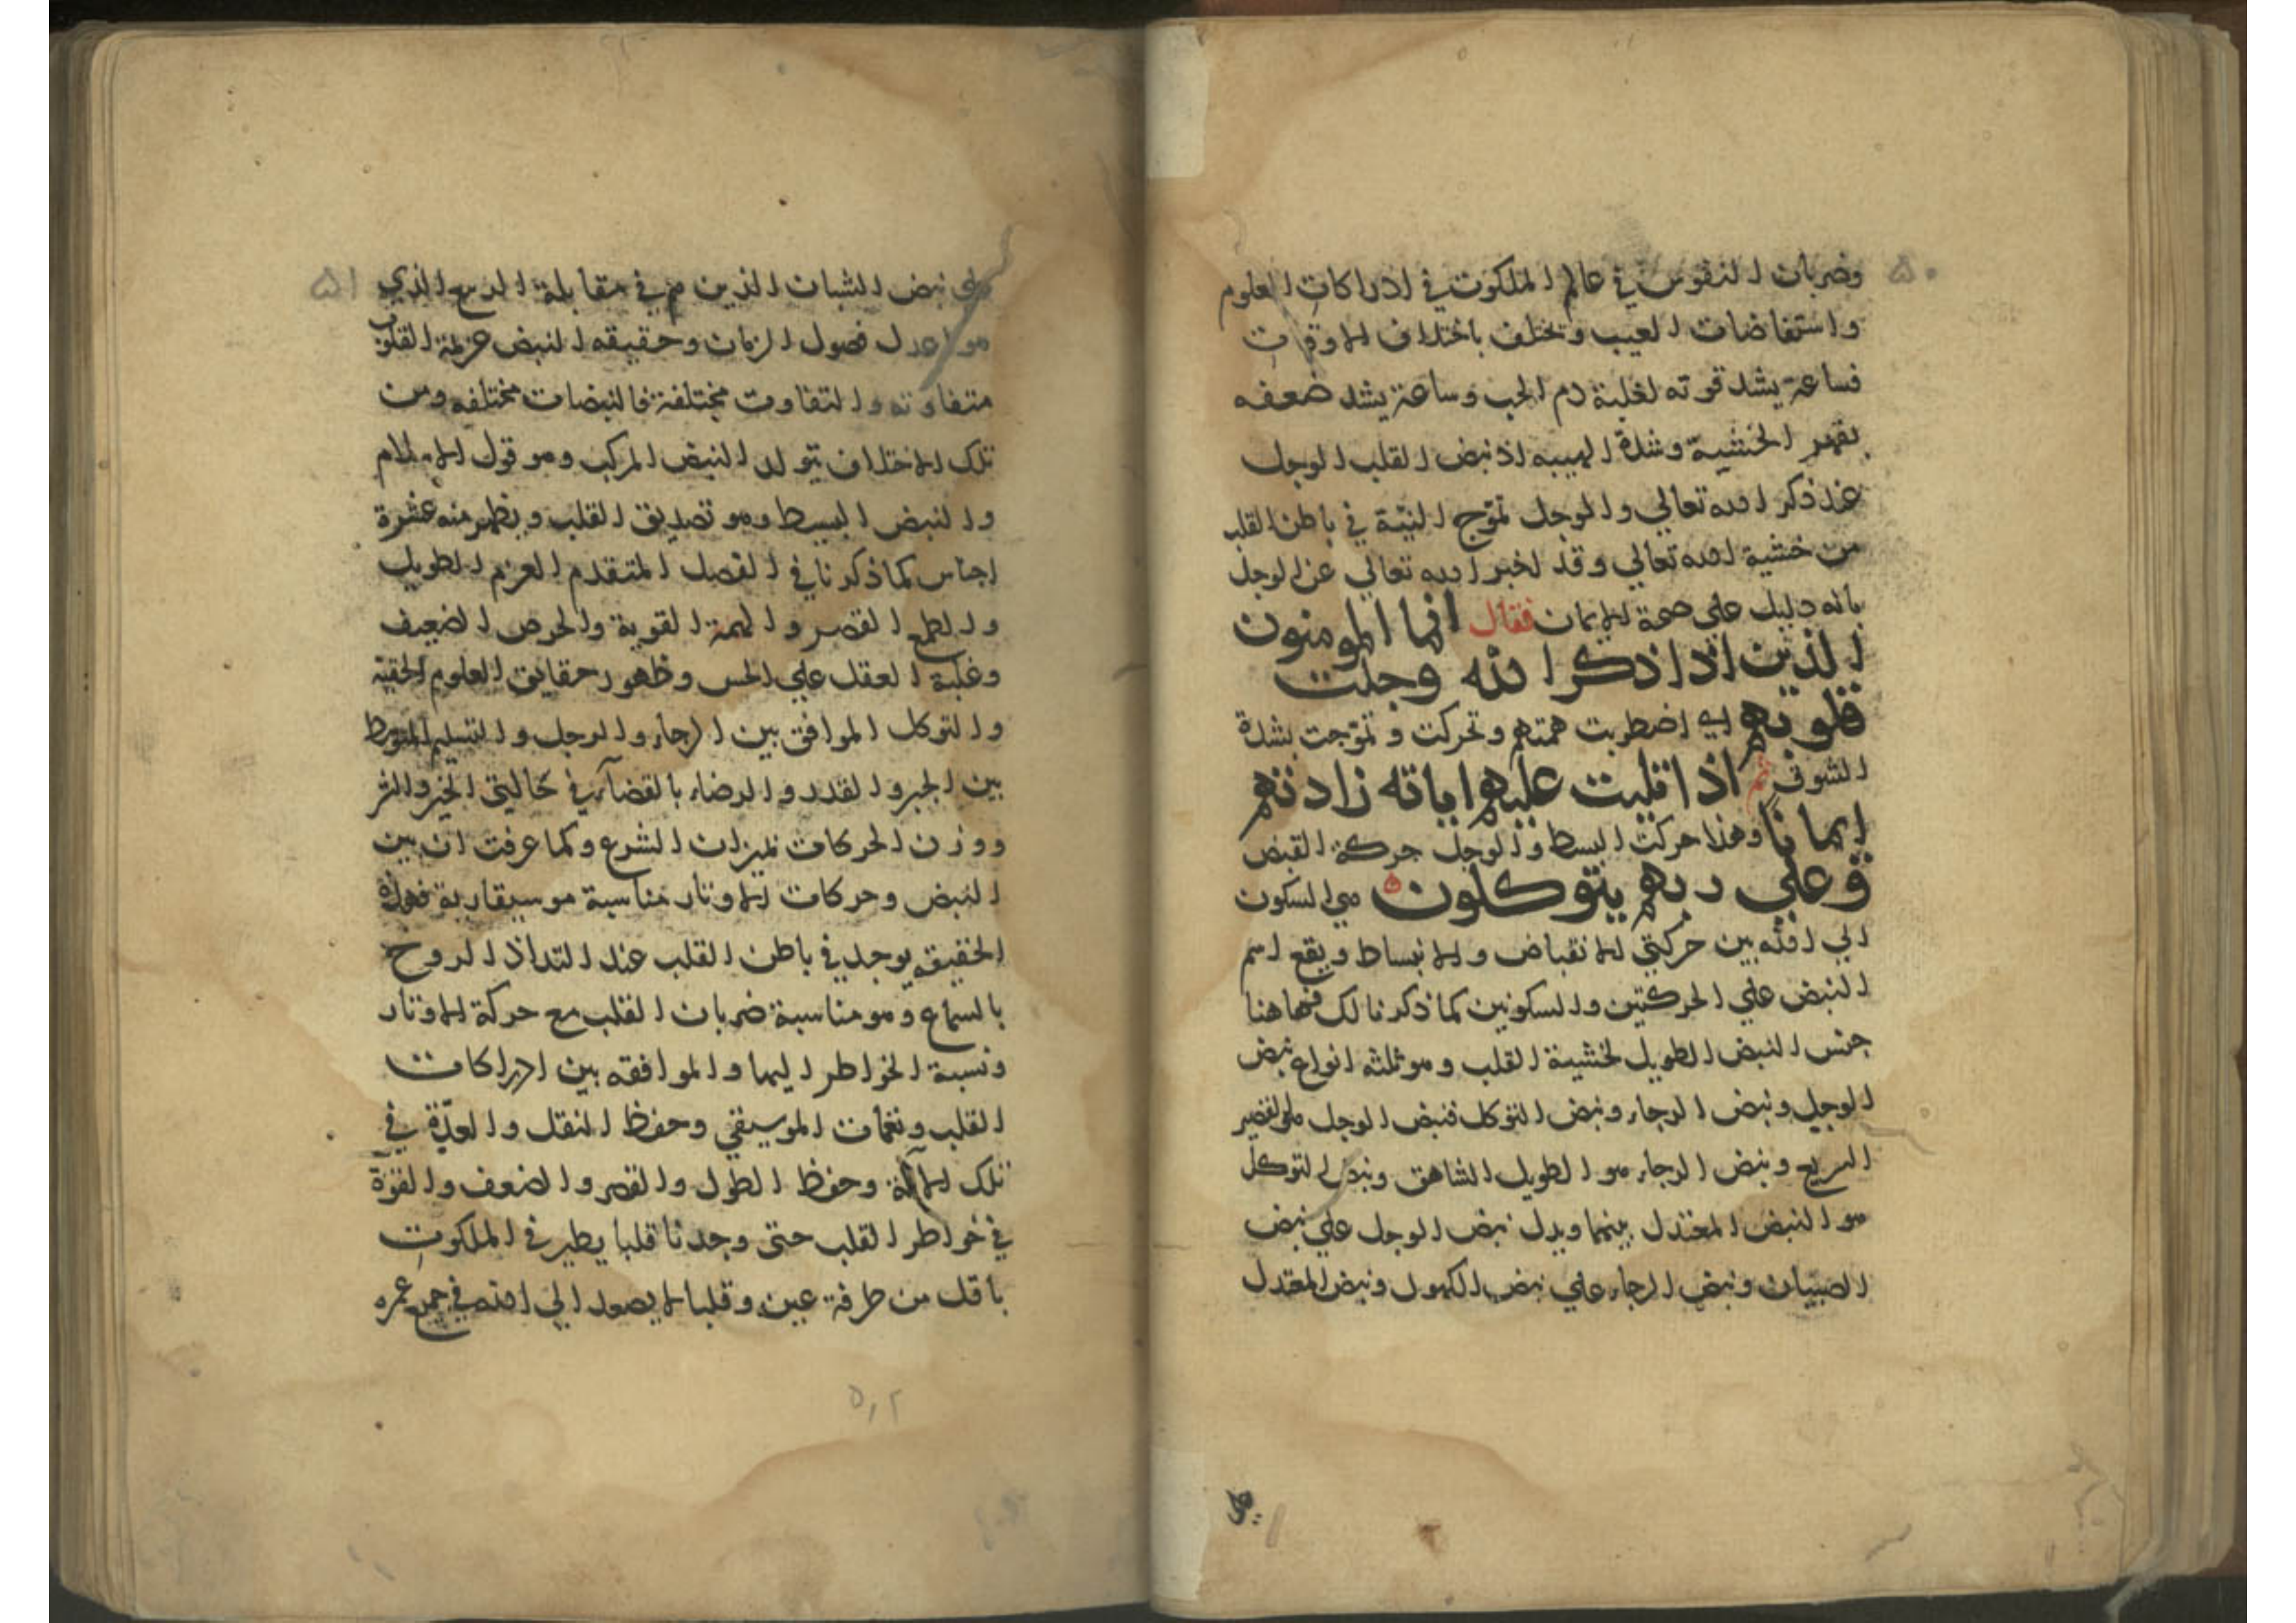 ٥٠
وضربان النفوس في عالم الملكوت في ادراكات العلوم
واستفاضات الغيب وتختلف باختلاف الاوقات
فساعة يشد قوته لغلبة دم الحب وساعة يشد ضعفه
بقهر الخشية وشدة الهيبه اذ نبض القلب الوجل
عند ذكر الله تعالي والوجل تموّج النيّة في باطن القلب
من خشية الله تعالي وقد اخبر الله تعالي عن الوجل
بانه دليل علي صحة الايمان فقال انما المومنون
الذين اذا ذكر الله وجلت
قلوبهم اي اضطربت همتهم وتحركت وتموّجت بشدة
الشوق ثم اذا تليت عليهم اياته زادتهم
ايمانا وهذا حركت البسط والوجل حركة القبض
وعلي ربهم يتوكلون هي السكون
الي الله بين حركتي الانقباض والانبساط ويقع اسم
النبض علي الحركتين والسكونين كما ذكرنا لك فهاهنا
جنس النبض الطويل لخشية القلب وهو ثلثه انواع نبض
الوجل ونبض الرجاء ونبض التوكل فنبض الوجل هو القصير
السريع ونبض الرجاء هو الطويل الشاهق ونبض التوكل
هو النبض المعتدل بينهما ويدل نبض الوجل علي نبض
الصبيان ونبض الرجاء علي نبض الكهول ونبض المعتدل
علي
٥١
علي نبض الشبان الذين هم في مقابلة الربيع الذي
هو اعدل فصول الزمان وحقيقه النبض عزيمة القلوب
متفاوته والتفاوت مختلفة فالنبضات مختلفه ومن
تلك الاختلاف يتولد النبض المركب وهو قول الاسلام
والنبض البسيط وهو تصديق القلب ويظهر منه عشرة
اجناس كما ذكرنا في الفصل المتقدم العزم الطويل
والطمع القصير والهمة القوية والحرص الضعيف
وغلبة العقل علي الحس وظهور حقايق العلوم الحقيه
والتوكل الموافق بين الرجاء والوجل والتسليم المتوسط
بين الجبر والقدر والرضاء بالقضآء في حاليتي الخير والشر
ووزن الحركات بميزان الشرع وكما عرفت ان بين
النبض وحركات الاوتار مناسبة موسيقارية فهذه
الحقيقه يوجد في باطن القلب عند التذاذ الروح
بالسماع وهو مناسبة ضربان القلب مع حركة الاوتار
ونسبة الخواطر اليها والموافقه بين ادراكات
القلب ونغمات الموسيقي وحفظ النقل والعدّة في
تلك الآلة وحفظ الطول والقصر والضعف والقوّة
في خواطر القلب حتى وجدنا قلبا يطير في الملكوت
باقل من طرفة عين وقلبا لا يصعد الي الله في جميع عمره